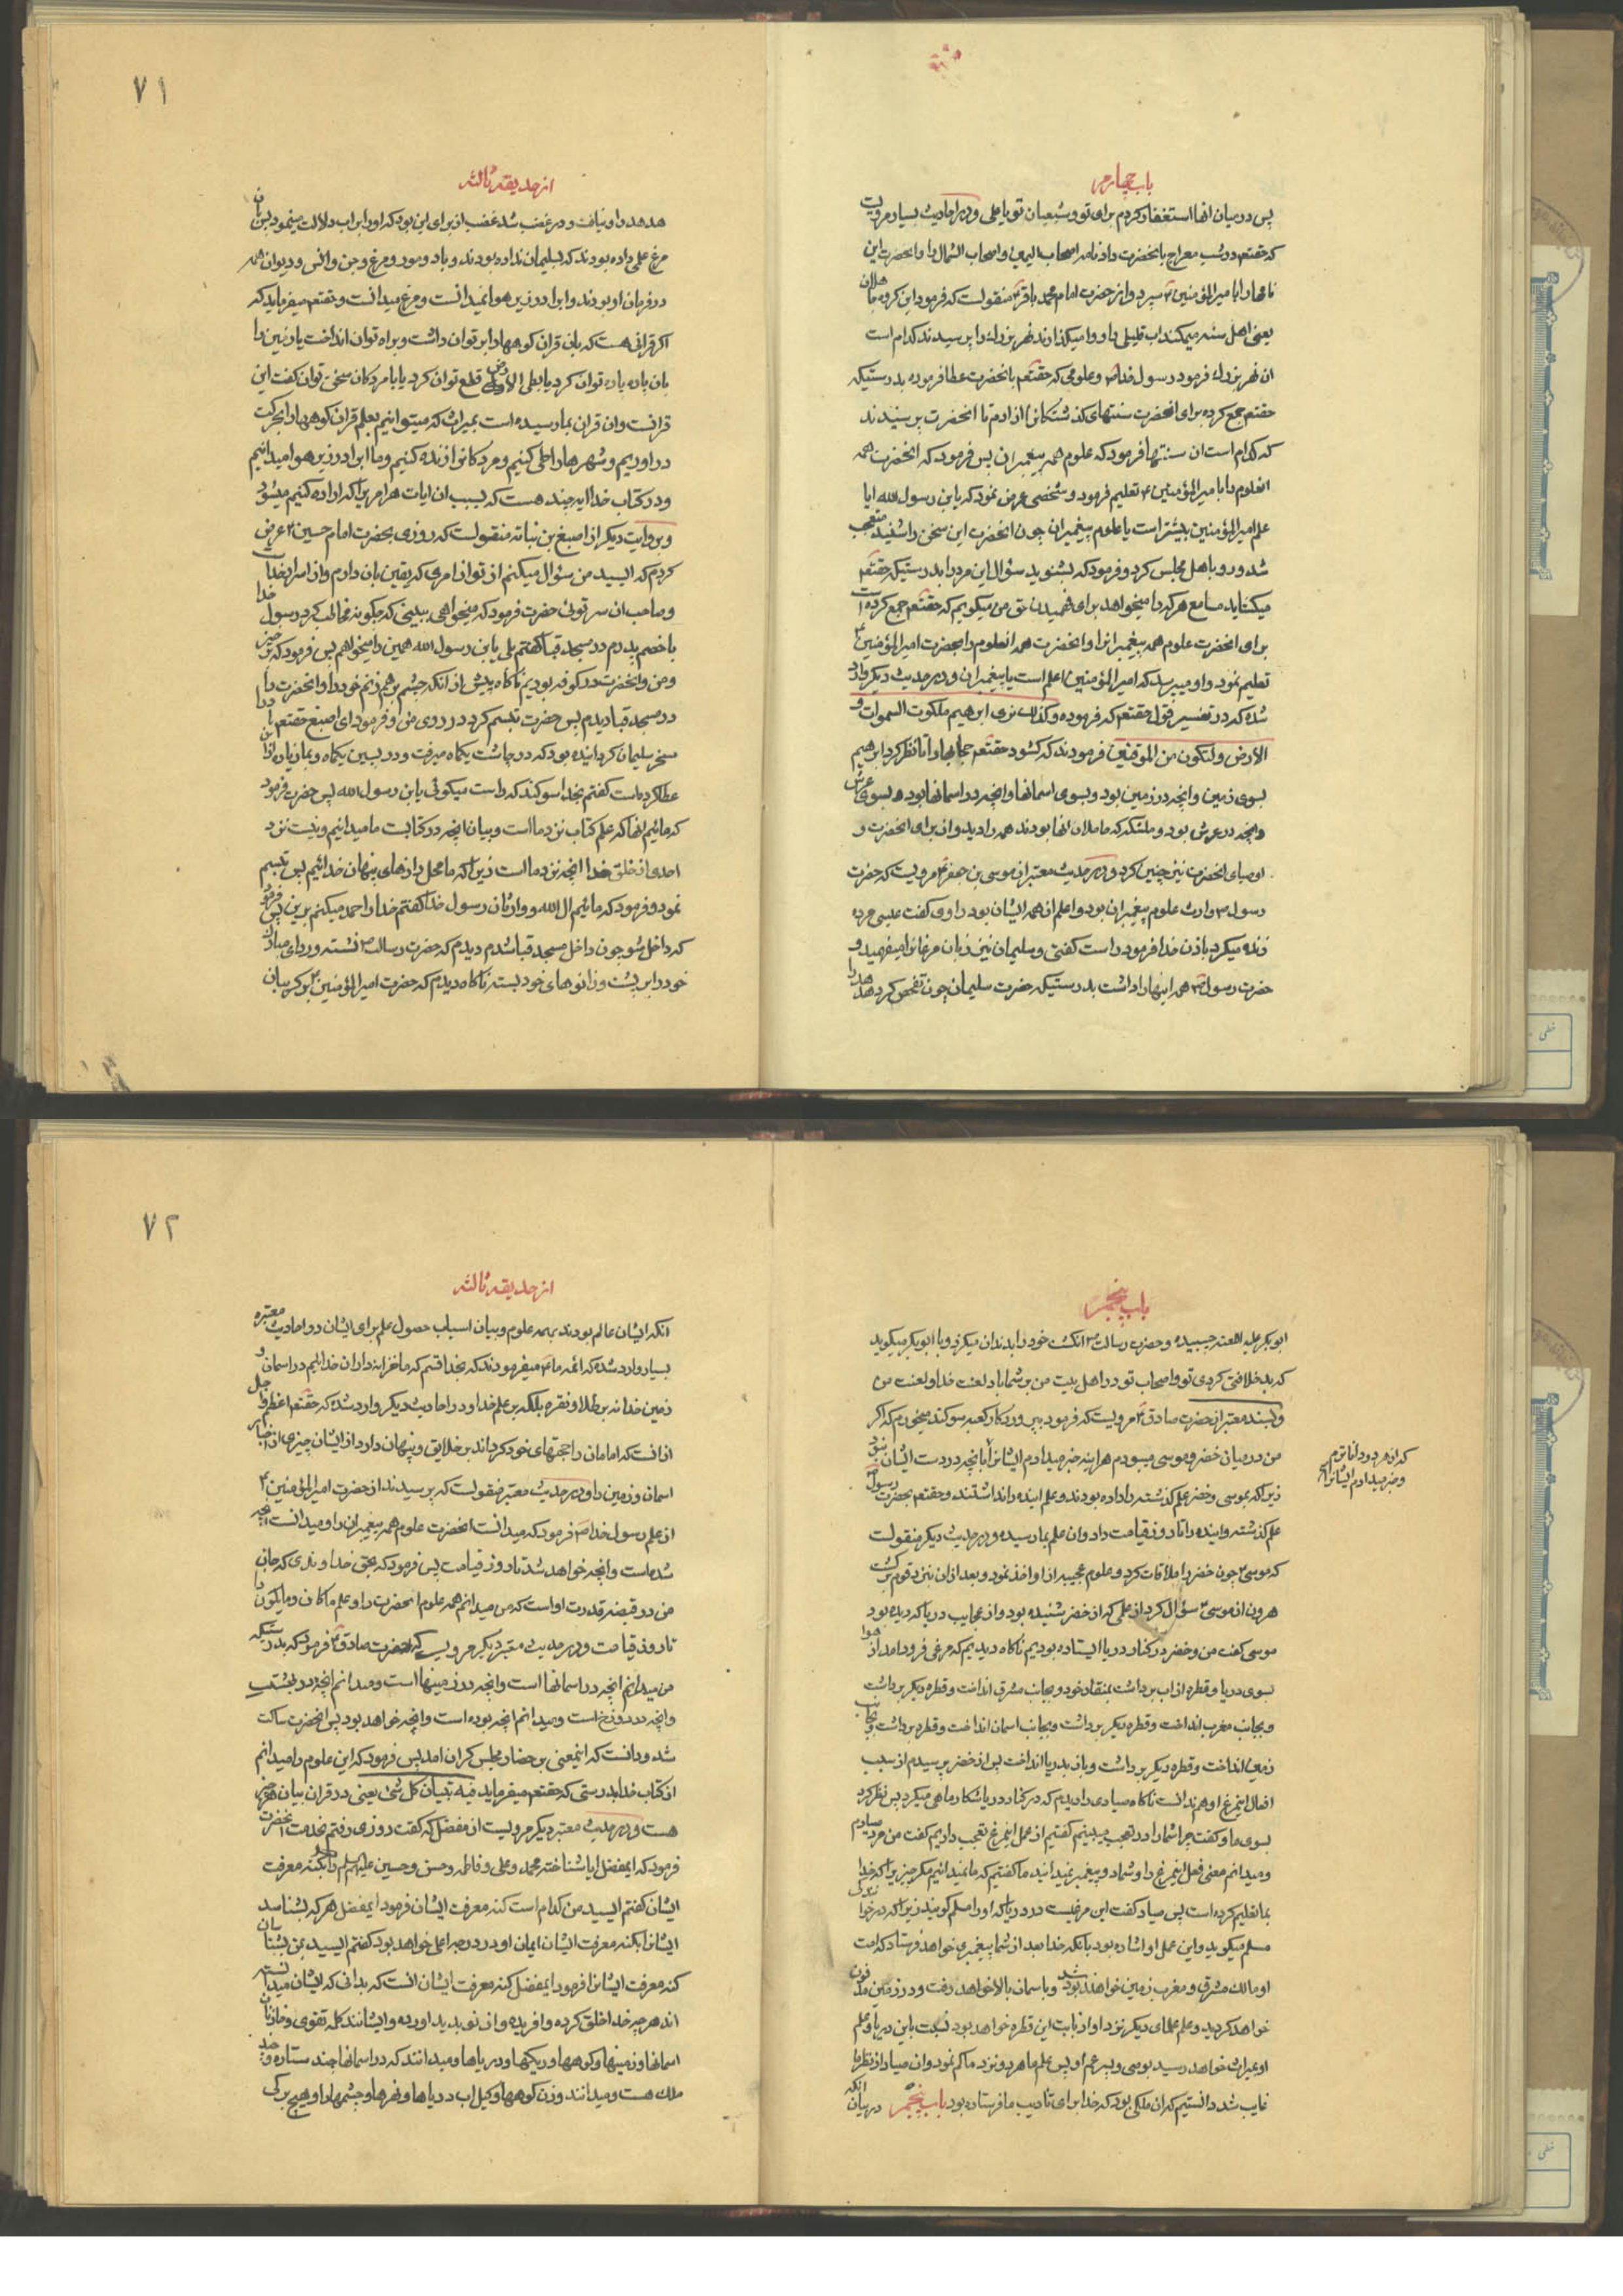 باب چهارم
پس در میان انها استغفار کردم برای تو و شیعیان تو یا علی و در احادیث بسیار مرویست
که حقتعم در شب معراج بانحضرت داد نامه اصحاب الیمین و اصحاب الشمال را و انحضرت این
نامها را بامیرالمؤمنین ع سپرد و از حضرت امام محمد باقر ع منقولست که فرمود این کروه جاهلان
یعنی اهل سنه میمکند اب قلیلی را و وا میکذارند نهر بزرك را پرسیدند کدام است
ان نهر بزرك فرمود رسول خدا ص و علومی که حقتعم بانحضرت عطا فرموده بدرستیکه
حقتعم جمع کرده برای انحضرت سنتهای کذشتکانرا از ادم تا انحضرت پرسیدند
که کدام است ان سنتها فرمود که علوم همه پیغمبران پس فرمود که انحضرت همه
انعلوم را بامیرالمؤمنین ع تعلیم فرمود و شخصی عرض نمود که یابن رسول الله ایا
علم امیرالمؤمنین بیشتر است یا علوم پیغمبران چون انحضرت این سخن را شنید متعجب
شد و رو باهل مجلس کرد و فرمود که بشنوید سؤال این مرد را بدرستیکه حقتعم
میکشاید مسامع هر که را میخواهد برای فهمیدن حق من میکویم که حقتعم جمع کرده است
برای انحضرت علوم همه پیغمبرانرا و انحضرت همه انعلوم را بحضرت امیرالمؤمنین ع
تعلیم نمود و او میپرسد که امیرالمؤمنین اعلم است یا پیغمبران و در حدیث دیکر وارد
شده که در تفسیر قول حقتعم که فرموده و کذلك نری ابرهیم ملکوت السموات و
الارض و لتکون من الموقنین فرمودند که کشود حقتعم حجابها را تا نظر کرد ابرهیم
بسوی زمین و انچه در زمین بود و بسوی اسمانها و انچه در اسمانها بود و بسوی عرش
و انچه در عرش بود و ملئکه که حاملان انها بودند همه را دید و ان برای انحضرت و
اوصیای انحضرت نیز چنین کرد و در حدیث معتبر از موسی بن جعفر ع مرویست که حضرت
رسول ص وارث علوم پیغمبران بود و اعلم از همه ایشان بود راوی کفت عیسی مرده
زنده میکرد باذن خدا فرمود راست کفتی و سلیمان نیز زبان مرغانرا میفهمید و
حضرت رسول ص همه اینها را داشت بدرستیکه حضرت سلیمان چون تفحص کرد هدهد را
۷۱
از حدیقه ثالثه
هدهد را و نیافت و در غضب شد غضب او برای این بود که او را بر اب دلالت مینمود پس بان
مرغ علمی داده بودند که بسلیمان نداده بودند و باد و مور و مرغ و جن و انس و دیوان همه
در فرمان او بودند و ابرا در زیر هوا نمیدانست و مرغ میدانست و حقتعم میفرماید که
اکر قرانی هست که بان قران کوهها را بر توان داشت و براه توان انداخت یا زمین را
بان پاره پاره توان کرد یا بطی الارض قطع توان کرد یا با مردکان سخن توان کفت این
قرانست و ان قران بما رسیده است بمیراث که میتوانیم بعلم قران کوهها را بحرکت
دراوریم و شهرها را طی کنیم و مردکانرا زنده کنیم و ما ابرا در زیر هوا میدانیم
و در کتاب خدا ایه چند هست که بسبب ان ایات هر امریرا که اراده کنیم میشود
و بروایت دیکر از اصبغ بن نباته منقولست که روزی بحضرت امام حسین ع عرض
کردم که ای سید من سؤال میکنم از تو از امری که یقین بان دارم و از اسرار خداست
و صاحب ان سر توئی حضرت فرمود که میخواهی ببینی که چکونه مخاطبه کرد رسول خدا
با خصم پدرم در مسجد قبا کفتم بلی یابن رسول الله همین را میخواهم پس فرمود که برخیز
و من و انحضرت در کوفه بودیم ناکاه پیش از انکه چشم بر هم زنم خود را و انحضرت را
در مسجد قبا دیدم پس حضرت تبسم کرد در روی من و فرمود ای اصبغ حقتعم باد را
مسخر سلیمان کردانیده بود که در چاشت یکماه میرفت و در پسین یکماه و بما زیاده از ان
عطا کرده است کفتم بخدا سوکند که راست میکوئی یابن رسول الله پس حضرت فرمود
که مائیم انها که علم کتاب نزد ما است و بیان انچه در کتابست ما میدانیم و نیست نزد
احدی از خلق خدا انچه نزد ما است زیرا که ما محل رازهای پنهان خدائیم پس تبسم
نمود و فرمود که مائیم ال الله و وارثان رسول خدا کفتم خدا را حمد میکنم برین پس فرمود
که داخل شو چون داخل مسجد قبا شدم دیدم که حضرت رسالت ص نشسته و ردای مبارك
خود را بر پشت و زانوهای خود بسته ناکاه دیدم که حضرت امیرالمؤمنین ع بر کریبان
باب پنجم
ابوبکر علیه اللعنه چسبیده و حضرت رسالت ص انکشت خود را بدندان میکزد و با ابوبکر میکوید
که بد خلافتی کردی تو و اصحاب تو در اهل بیت من بر شما باد لعنت خدا و لعنت من
و بسند معتبر از حضرت صادق ع مرویست که فرمود بپروردکار کعبه سوکند میخورم که اکر
من در میان خضر و موسی میبودم هر اینه خبر میدادم ایشانرا بانچه در دست ایشان نبود
زیرا که بموسی و خضر علم کذشته را داده بودند و علم اینده را نداشتند و حقتعم بحضرت رسول ص
علم کذشته و اینده را تا روز قیامت داد و ان علم بما رسیده و در حدیث دیکر منقولست
که موسی ع چون خضر را ملاقات کرد و علوم عجیبه از او اخذ نمود و بعد از ان بنزد قوم برکشت
هرون از موسی ع سؤال کرد از علمی که از خضر شنیده بود و از عجایب دریا که دیده بود
موسی کفت من و خضر در کنار دریا ایستاده بودیم ناکاه دیدیم که مرغی فرود امد از هوا
بسوی دریا و قطره از اب برداشت بمنقار خود و بجانب مشرق انداخت و قطره دیکر برداشت
و بجانب مغرب انداخت و قطره دیکر برداشت و بجانب اسمان انداخت و قطره برداشت و بجانب
زمین انداخت و قطره دیکر برداشت و باز بدریا انداخت پس از خضر پرسیدم از سبب
افعال اینمرغ او هم ندانست ناکاه صیادی را دیدم که در کنار دریا شکار ماهی میکرد پس نظر کرد
بسوی ما و کفت چرا شما را در تعجب میبینم کفتیم از عمل اینمرغ تعجب داریم کفت من مرد صیادم
و میدانم معنی فعل اینمرغ را و شما دو پیغمبر نمیدانید ما کفتیم که ما نمیدانیم مکر چیزیرا که خدا
بما تعلیم کرده است پس صیاد کفت این مرغیست در دریا که او را مسلم کویند زیرا که در خوانندکی
مسلم میکوید و این عمل او اشاره بود بانکه خدا بعد از شما پیغمبری خواهد فرستاد که امت
او مالك مشرق و مغرب زمین خواهند شد و باسمان بالا خواهد رفت و در زمین مدفون
خواهد کردید و علم علمای دیکر نزد او از بابت این قطره خواهد بود نسبت باین دریا و علم
او بمیراث خواهد رسید بوصی و پسر عم او پس علم ما هر دو نزد ما کم نمود و ان صیاد از نظر ما
غایب شد دانستیم که ان ملکی بود که خدا برای تادیب ما فرستاده بود باب پنجم در بیان انکه
که از هر دو داناترم
و خبر میدادم ایشانرا
۷۲
از حدیقه ثالثه
انکه ایشان عالم بودند بهمه علوم و بیان اسباب حصول علم برای ایشان در احادیث معتبره
بسیار وارد شده که ائمه ما ع میفرمودند که بخدا قسم که ما خزانه داران خدائیم در اسمان و
زمین خدا نه بر طلا و نقره بلکه بر علم خدا و در احادیث دیکر وارد شده که حقتعم اعظم و اجل
از انست که امامان را حجتهای خود کرداند بر خلایق و پنهان دارد از ایشان چیزی از اخبار
اسمان و زمین را و در حدیث معتبر منقولست که پرسیدند از حضرت امیرالمؤمنین ع
از علم رسول خدا ص فرمود که میدانست انحضرت علوم همه پیغمبران را و میدانست انچه
شده است و انچه خواهد شد تا روز قیامت پس فرمود که بحق خداوندی که جان
من در قبضه قدرت اواست که من میدانم همه علوم انحضرت را و علم ما کان و ما یکون را
تا روز قیامت و در حدیث معتبر دیکر مرویست که حضرت صادق ع فرمود که بدرستیکه
من میدانم انچه در اسمانها است و انچه در زمینها است و میدانم انچه در بهشتست
و انچه در دوزخ است و میدانم انچه بوده است و انچه خواهد بود پس انحضرت ساکت
شد و دانست که اینمعنی بر حضار مجلس کران امد پس فرمود که این علوم را میدانم
از کتاب خدا بدرستی که حقتعم میفرماید فیه تبیان کل شئ یعنی در قران بیان همه چیز
هست و در حدیث معتبر دیکر مرویست از مفضل که کفت روزی رفتم بخدمت انحضرت
فرمود که ایمفضل ایا شناخته محمد و علی و فاطمه و حسن و حسین علیهم السلم را بکنه معرفت
ایشان کفتم ای سید من کدام است کنه معرفت ایشان فرمود ایمفضل هر که بشناسد
ایشانرا بکنه معرفت ایشان ایمان او در درجه اعلی خواهد بود کفتم ای سید بمن بشناسان
کنه معرفت ایشانرا فرمود ایمفضل کنه معرفت ایشان انست که بدانی که ایشان میدانسته
اند هر چه خدا خلق کرده و افریده و از نو پدید اورده و ایشانند کلمه تقوی و خازنان
اسمانها و زمینها و کوهها و ریکها و دریاها و میدانند که در اسمانها چند ستاره و چند
ملك هست و میدانند وزن کوهها و کیل اب دریاها و نهرها و چشمها را و هیچ برکی